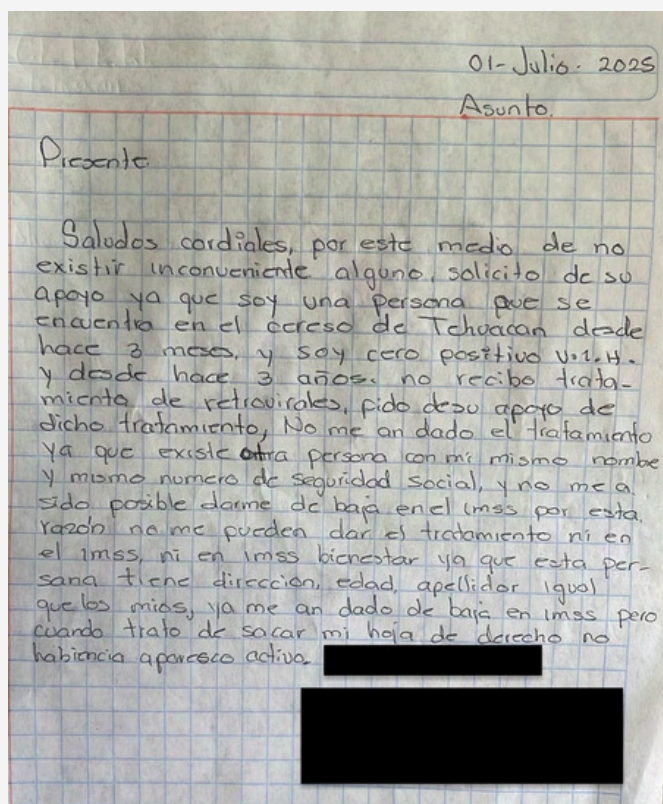 01-Julio. 2025
Asunto.
Presente
Saludos cordiales, por este medio de no
existir inconveniente alguno, solicito de su
apoyo ya que soy una persona que se
encuentra en el cereso de Tehuacan desde
hace 3 meses, y soy cero positivo V.I.H.
y desde hace 3 años. no recibo trata-
miento de retrovirales, pido desu apoyo de
dicho tratamiento, No me an dado el tratamiento
ya que existe otra persona con mi mismo nombre
y mismo numero de seguridad social, y no me a
sido posible darme de baja en el imss por esta
razón no me pueden dar el tratamiento ni en
el imss, ni en imss bienestar ya que esta per-
sona tiene dirección, edad, apellidor igual
que los mios, ya me an dado de baja en imss pero
cuando trato de sacar mi hoja de derecho no
habiencia aparesco activo.